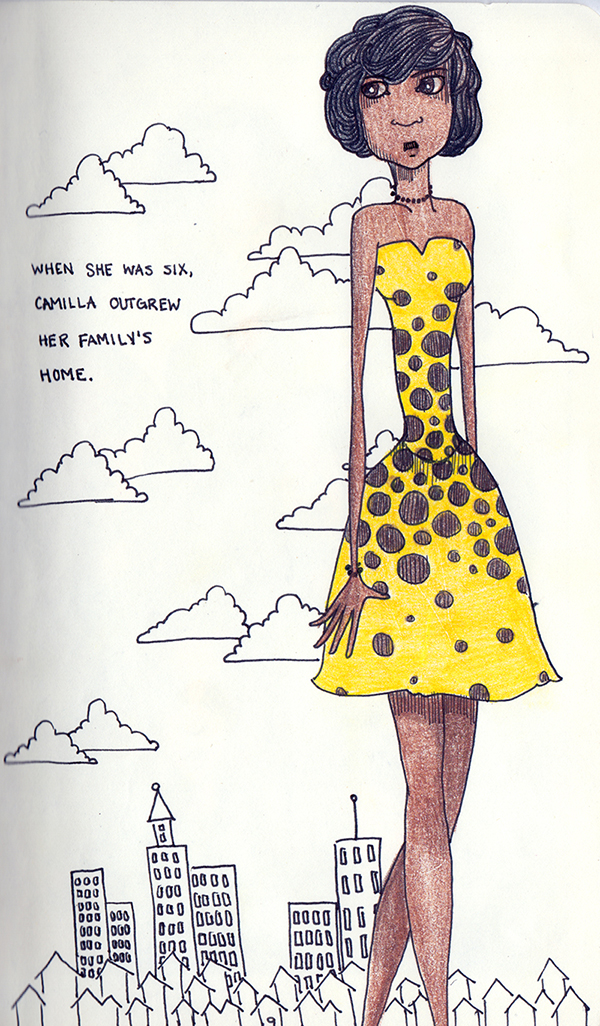 WHEN SHE WAS SIX,
CAMILLA OUTGREW
HER FAMILY'S
HOME.